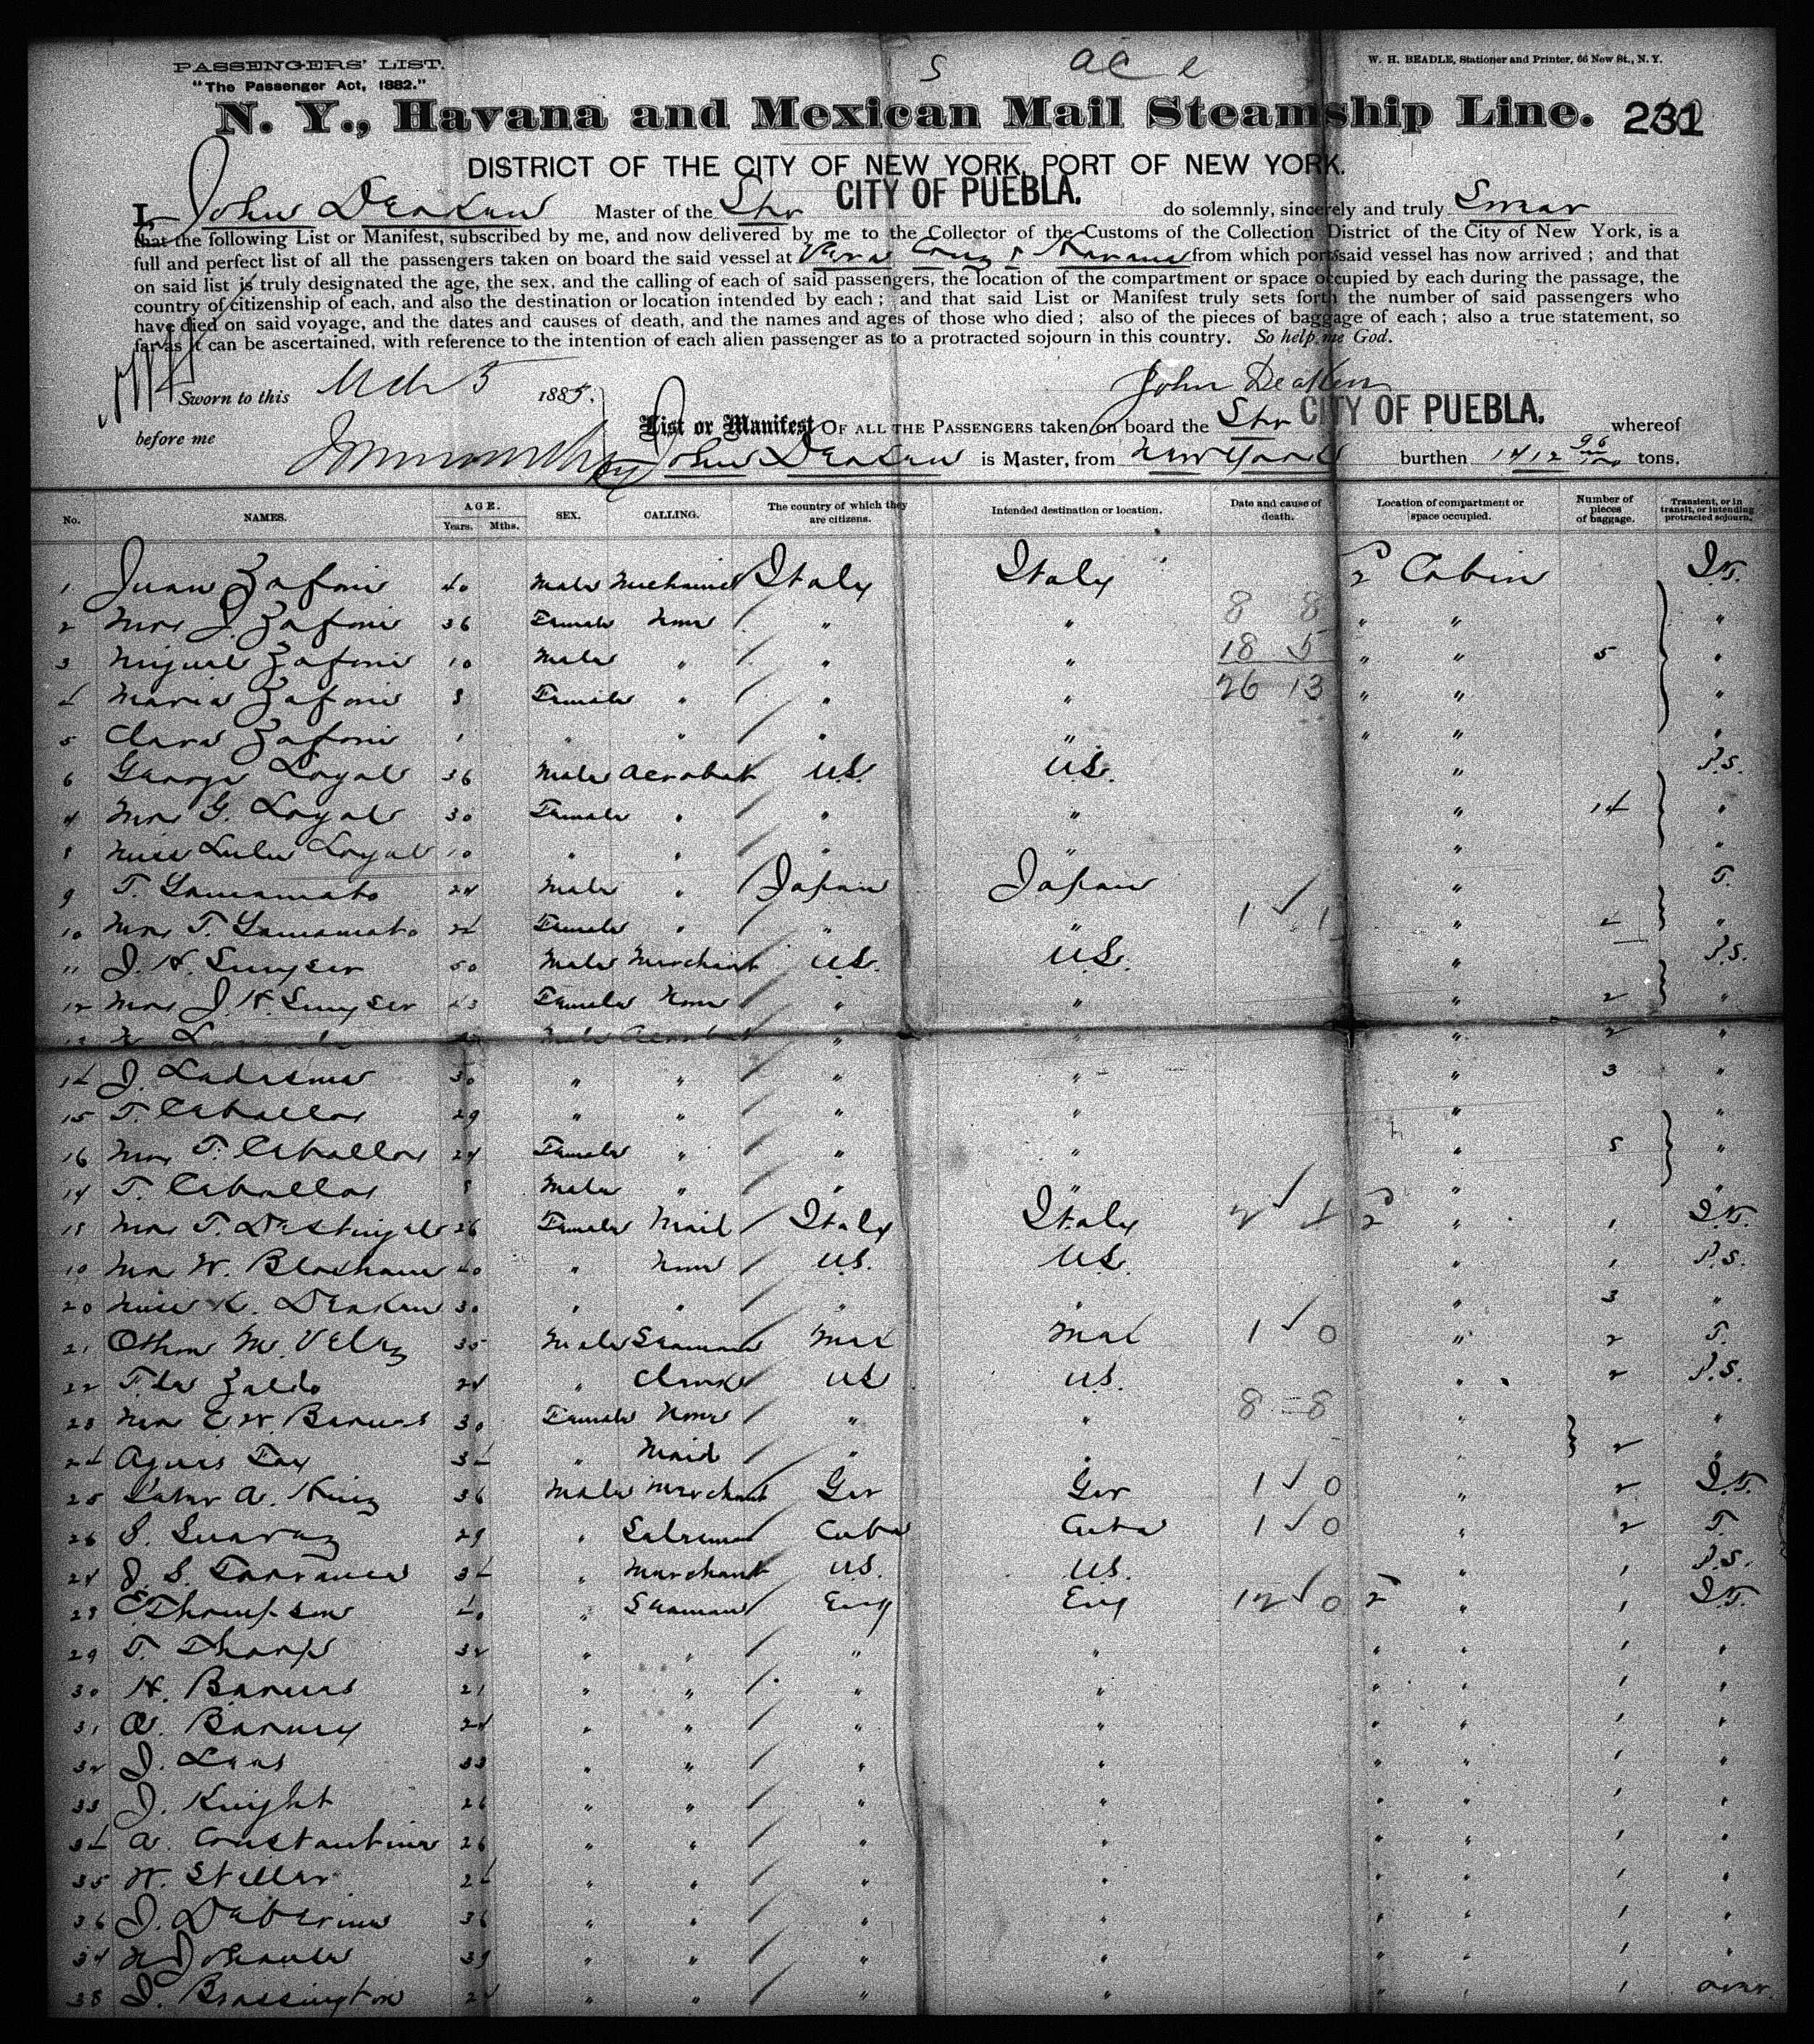 PASSENGERS' LIST.
"The Passenger Act, 1882."
W. H. BEADLE, Stationer and Printer, 66 New St., N. Y.
N. Y., Havana and Mexican Mail Steamship Line. 231
DISTRICT OF THE CITY OF NEW YORK, PORT OF NEW YORK.
I, John Deaken Master of the Str CITY OF PUEBLA. do solemnly, sincerely and truly Swear
that the following List or Manifest, subscribed by me, and now delivered by me to the Collector of the Customs of the Collection District of the City of New York, is a
full and perfect list of all the passengers taken on board the said vessel at Vera Cruz & Havana from which ports said vessel has now arrived ; and that
on said list is truly designated the age, the sex, and the calling of each of said passengers, the location of the compartment or space occupied by each during the passage, the
country of citizenship of each, and also the destination or location intended by each ; and that said List or Manifest truly sets forth the number of said passengers who
have died on said voyage, and the dates and causes of death, and the names and ages of those who died ; also of the pieces of baggage of each ; also a true statement, so
far as it can be ascertained, with reference to the intention of each alien passenger as to a protracted sojourn in this country. So help me God.
Sworn to this Mch 5 1885. John Deaken
before me
List or Manifest OF ALL THE PASSENGERS taken on board the Str CITY OF PUEBLA. whereof
John Deaken is Master, from New York burthen 1712 96/100 tons.
No. NAMES. AGE. Years. Mths. SEX. CALLING. The country of which they are citizens. Intended destination or location. Date and cause of death. Location of compartment or space occupied. Number of pieces of baggage. Transient, or in transit, or intending protracted sojourn.
1 Juan Zafoni 40 Male Mechanic Italy Italy 2 Cabin I.T.
2 Mrs J. Zafoni 36 Female None " " 8 8 " " "
3 Miguel Zafoni 10 Male " " " 18 5 " " 5 "
4 Maria Zafoni 8 Female " " " 26 13 " " "
5 Clara Zafoni 1 " " " " " " "
6 George Loyal 36 Male Acrobat U.S. U.S. " P.S.
7 Mrs G. Loyal 30 Female " " " " 14 "
8 Miss Lulu Loyal 10 " " " " " "
9 T. Yamamato 27 Male " Japan Japan " T.
10 Mrs T. Yamamato 24 Female " " " 1 1 " 2 "
11 J. H. 50 Male Merchant U.S. U.S. " P.S.
12 Mrs J. H. 43 Female None " " " 2 "
13 Male Acrobat " " " 2 "
14 J. Ladesma 30 " " " " " 3 "
15 T. Ceballos 29 " " " " " "
16 Mrs T. Ceballos 27 Female " " " " 5 "
17 T. Ceballos 8 Male " " " " "
18 Mrs T. 26 Female Maid Italy Italy 2 " 1 I.T.
19 Mrs W. 40 " None U.S. U.S. " 1 P.S.
20 Miss K. Deaken 30 " " " " " 3 "
21 Othon M. Velez 35 Male Seaman Mex Mex 1 0 " 2 T.
22 F. de Zaldo 27 " Clerk U.S. U.S. " 2 P.S.
23 Mrs E. W. Barnes 30 Female None " " 8 8 " "
24 Agnes Fay 34 " Maid " " " 2 "
25 A. King 36 Male Merchant Ger Ger 1 0 " 2 I.T.
26 S. Suarez 29 " Salesman Cuba Cuba 1 0 " 2 T.
27 J. S. Torrance 34 " Merchant U.S. U.S. " 1 P.S.
28 E. Thompson 40 " Seaman Eng Eng 12 0 2 " 1 I.T.
29 T. Tharp 32 " " " " " " 1 "
30 H. Barnes 21 " " " " " " 1 "
31 A. Barney 27 " " " " " " 1 "
32 J. Laas 33 " " " " " " 1 "
33 J. Knight 26 " " " " " " 1 "
34 A. Constantine 26 " " " " " " 1 "
35 W. Steller 24 " " " " " " 1 "
36 J. 36 " " " " " " 1 "
37 39 " " " " " " 1 "
38 J. Brassington 27 " " " " " " 1 over.